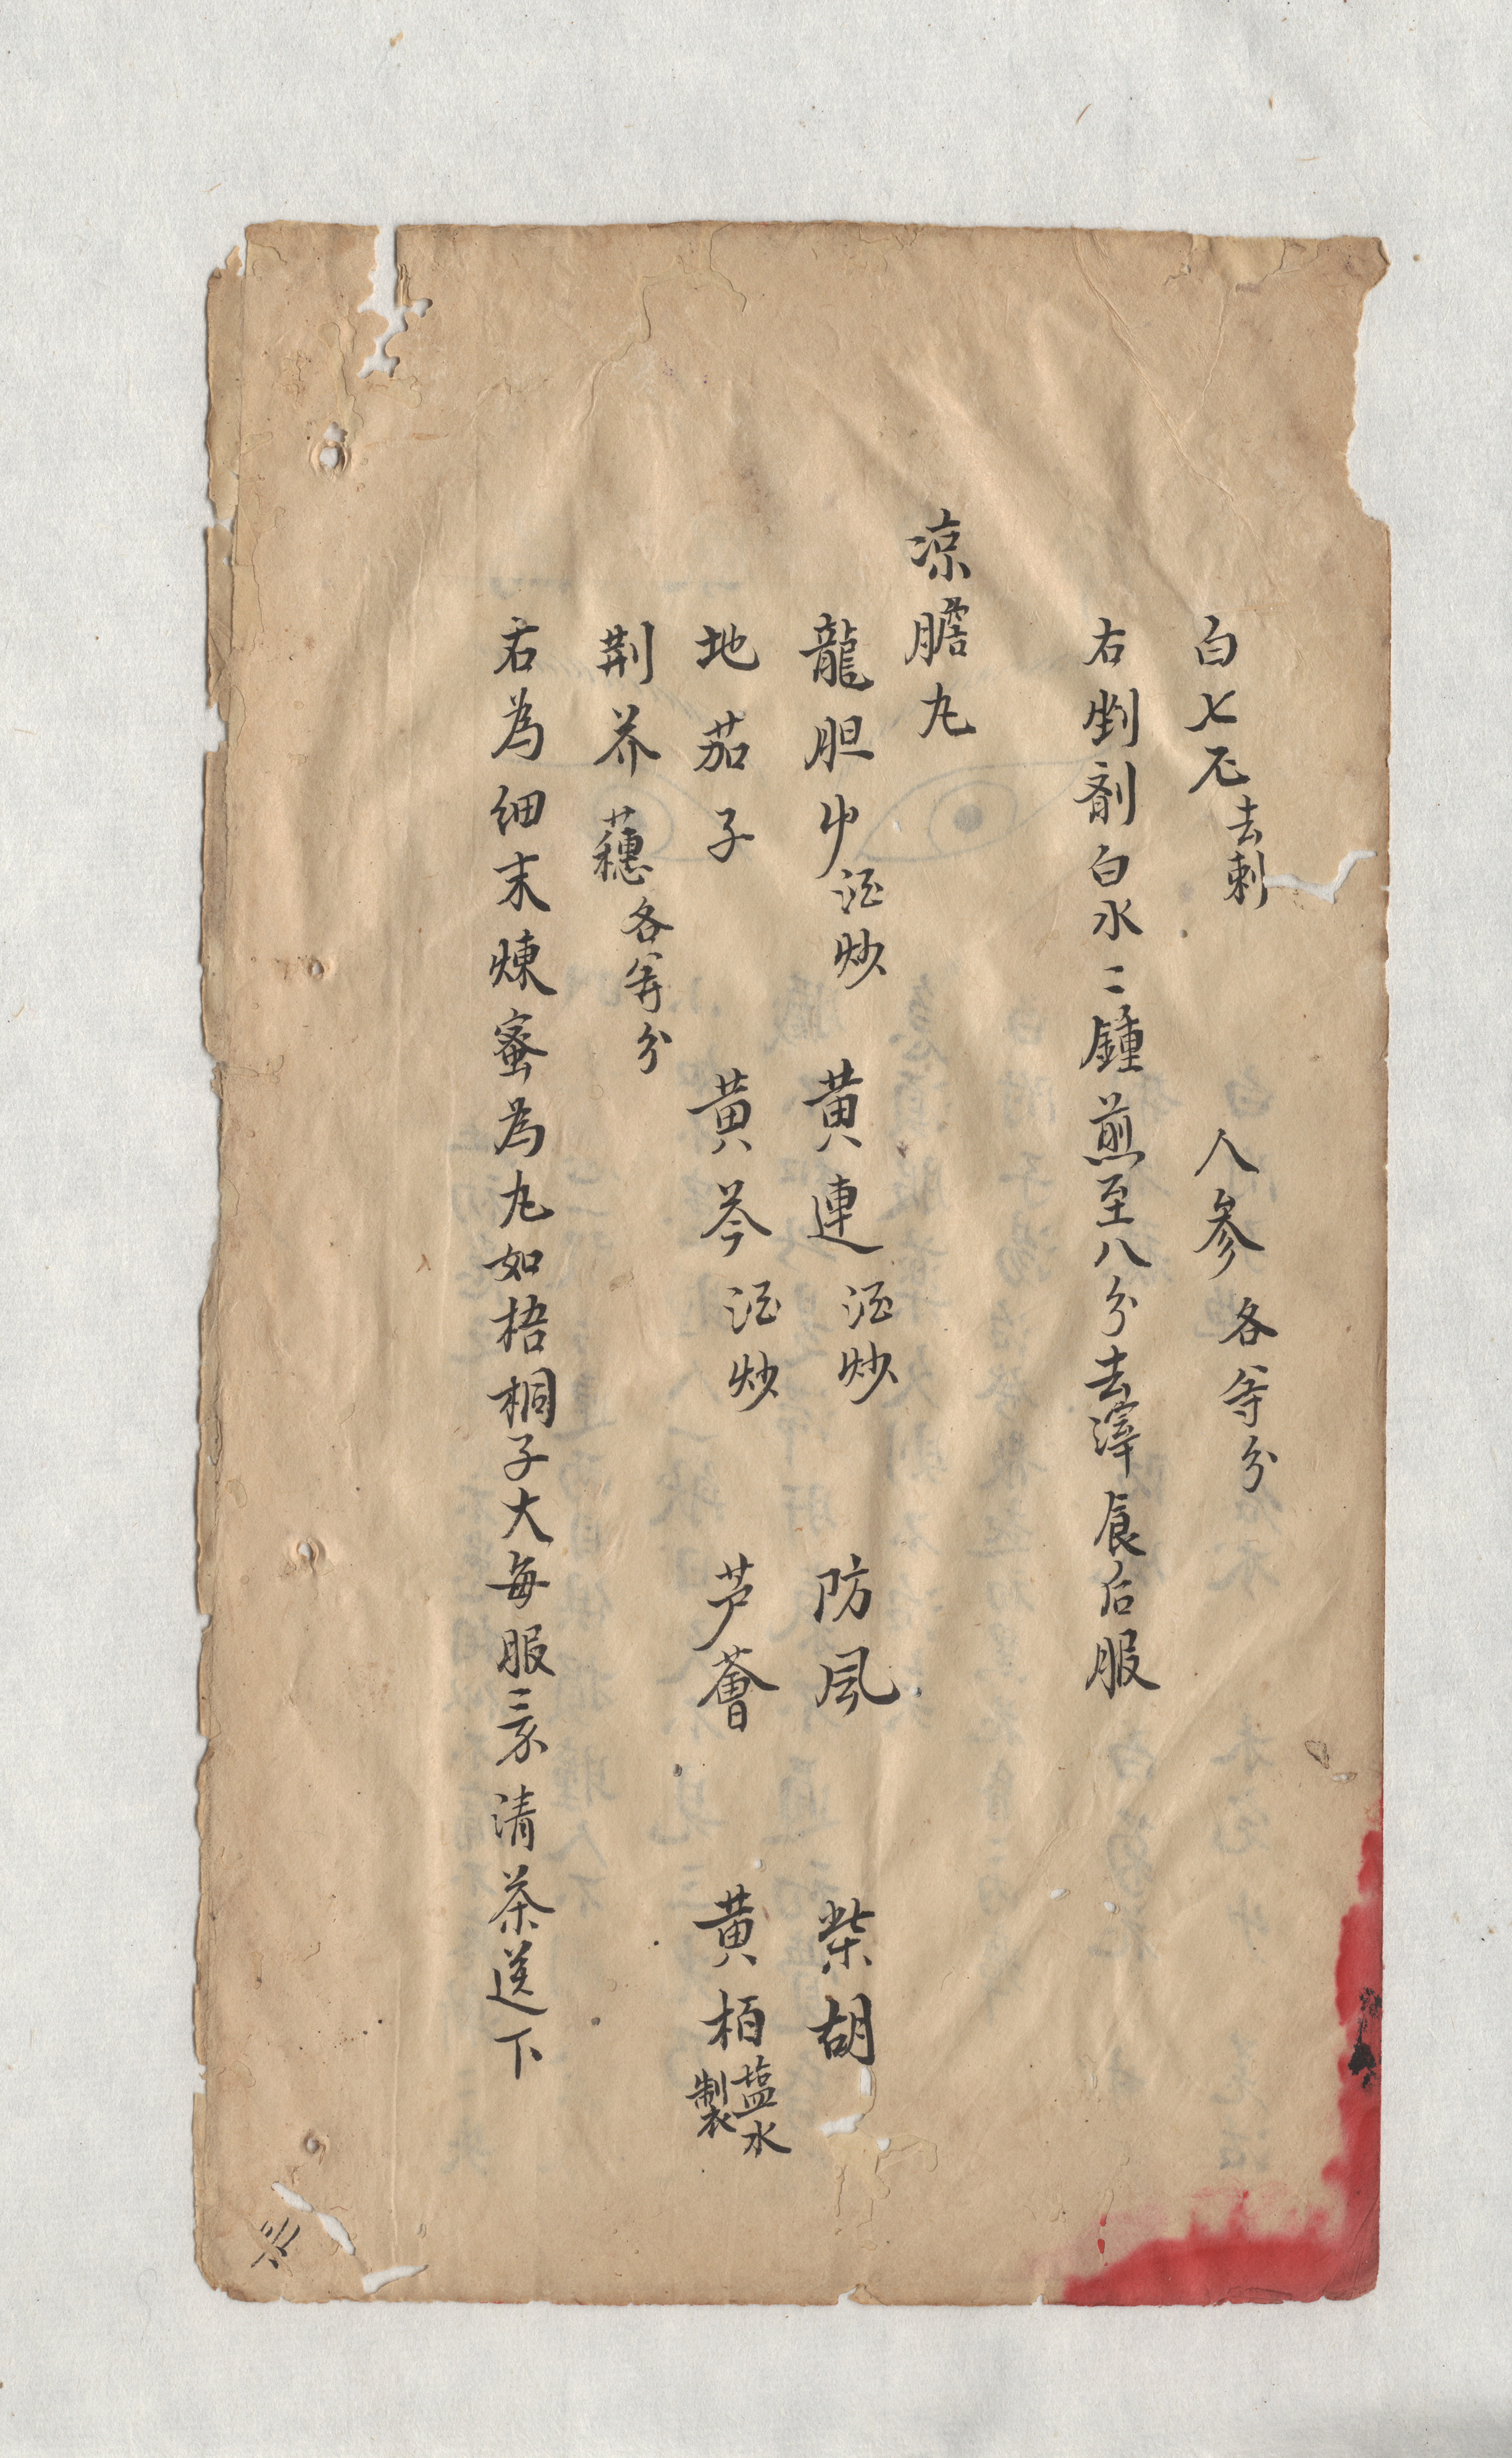 白七厄去刺　人參各等分
右剉劑白水二鍾煎至八分去滓食后服
凉膽丸
龍胆屮酒炒　黄連酒炒　防風　柴胡
地茄子　黄芩酒炒　芦薈　黄栢塩水製
荆芥穗各等分
右為細末煉蜜為丸如梧桐子大每服三錢清茶送下